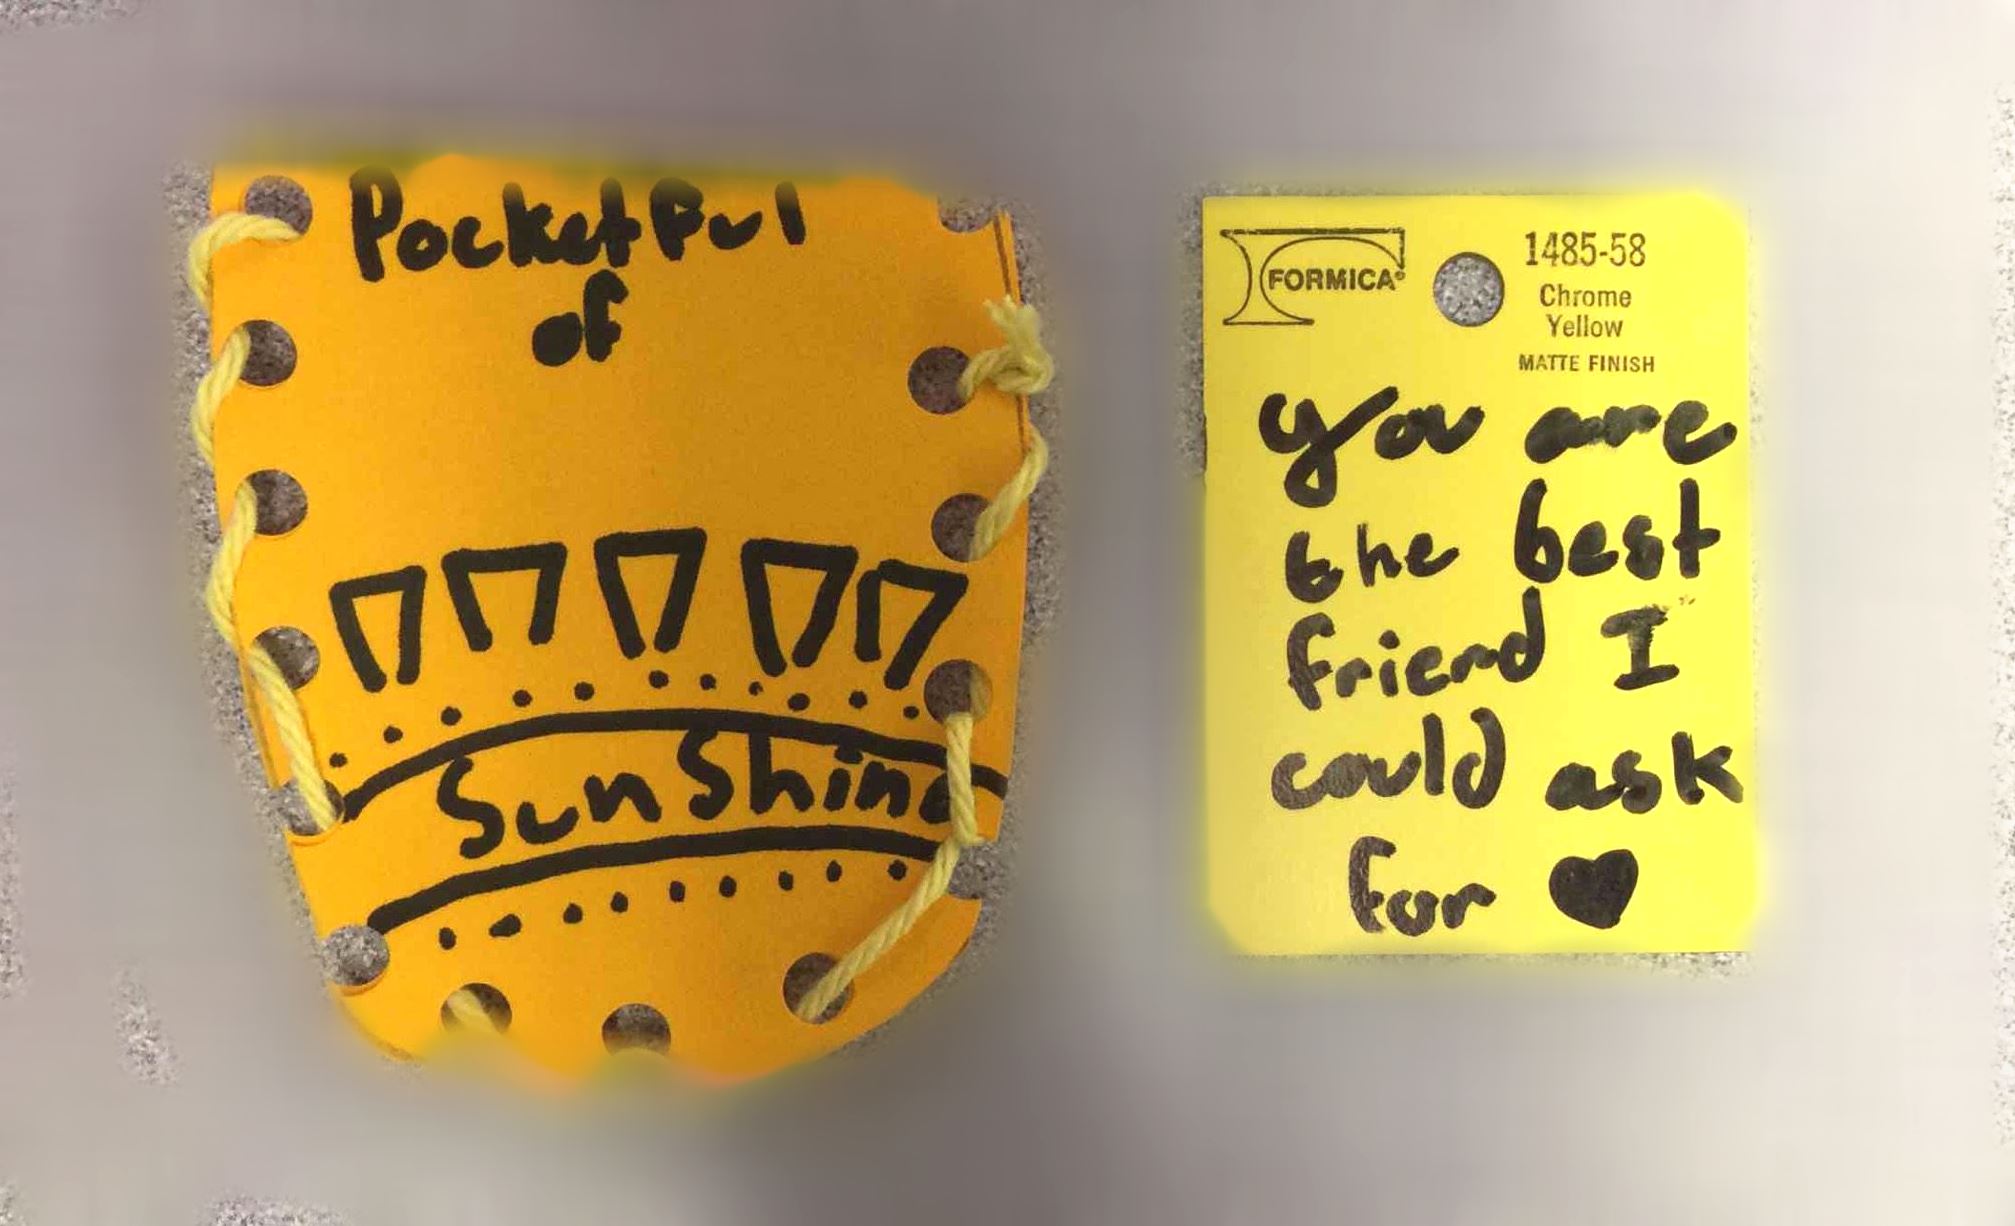 PocketFul
of
SunShine
FORMICA®
1485-58
Chrome
Yellow
MATTE FINISH
you are
the best
friend I
could ask
for ♥